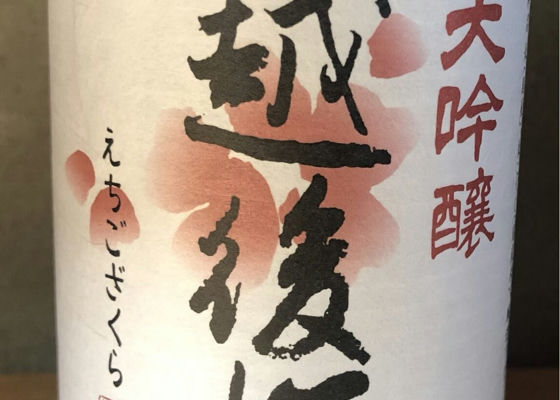 大吟醸
越後
えちござくら